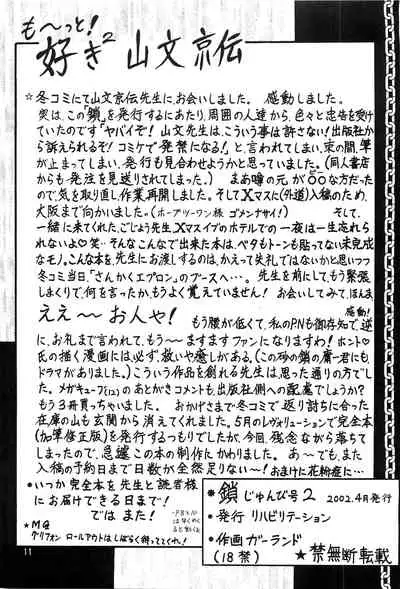 も〜っと!
好き² 山文京伝
☆冬コミにて山文京伝先生に、お会いしました。 感動しました。
実は、この「鎖」を発行するにあたり、周囲の人達から、色々と忠告を受け
ていたのです「ヤバイぞ!山文先生は、こういう事は許さない!出版社か
ら訴えられるぞ!コミケで発禁になる!」と、言われてしまい、束の間、筆
が止まってしまい、発行も見合わせようかと思っていました。(同人書店
からも発注を見送りされてしまった。) まあ噂の元が○○な方だった
ので、気を取り直し、作業再開しました。そしてXマスに(外道)入稿のため、
大阪まで向かいました。(ホープツーワン様 ゴメンナサイ!) そして、
一緒に来てくれた、ごじょう先生、Xマスイブのホテルでの一夜は一生忘れら
れないよ♡笑… そんなこんなで出来た本は、ベタもトーンも貼ってない未完成
なモノ。こんな本を、先生にお渡しするのは、かえって失礼ではないかと思いつつ
冬コミ当日「さんかくエプロン」のブースへ…。先生を前にして、もう緊張
しまくりで、何を言ったか、もうよく覚えていません!お会いしてみて、ほんま、
ええ〜お人や! 感動!
もう腰が低くて、私のPNも御存知で、逆
に、お礼まで言われて、もう〜ますますファンになりますわ!ホント♡
氏の描く漫画には、必ず、救いや癒しがある。(この砂の鎖の庸一君にも
ドラマがありました。) こういう作品を創れる先生は、思った通りの方でし
た。メガキューブ(12)のあとがきコメントも、出版社側への配慮でしょうか?
もう3冊買っちゃいました。 おかげさまで冬コミで返り討ちに合った
在庫の山も玄関から消えてくれました。5月のレヴォリューションで完全本
(加筆修正版)を発行するつもりでしたが、今回、残念ながら落ちて
しまったので、急遽この本の制作にかわりました。 あ〜でも、また
入稿の予約日まで日数が全然足りな〜い!おまけに花粉症に…
●いつか完全本を先生と読者様
にお届けできる日まで!
では また!
☆MG
グリフォン ロールアウトはしばらく待っててくれ!
●鎖 じゅんび号2 2002.4月発行
●発行 リハビリテーション
●作画 ガーランド
(18禁) ☆禁無断転載
11